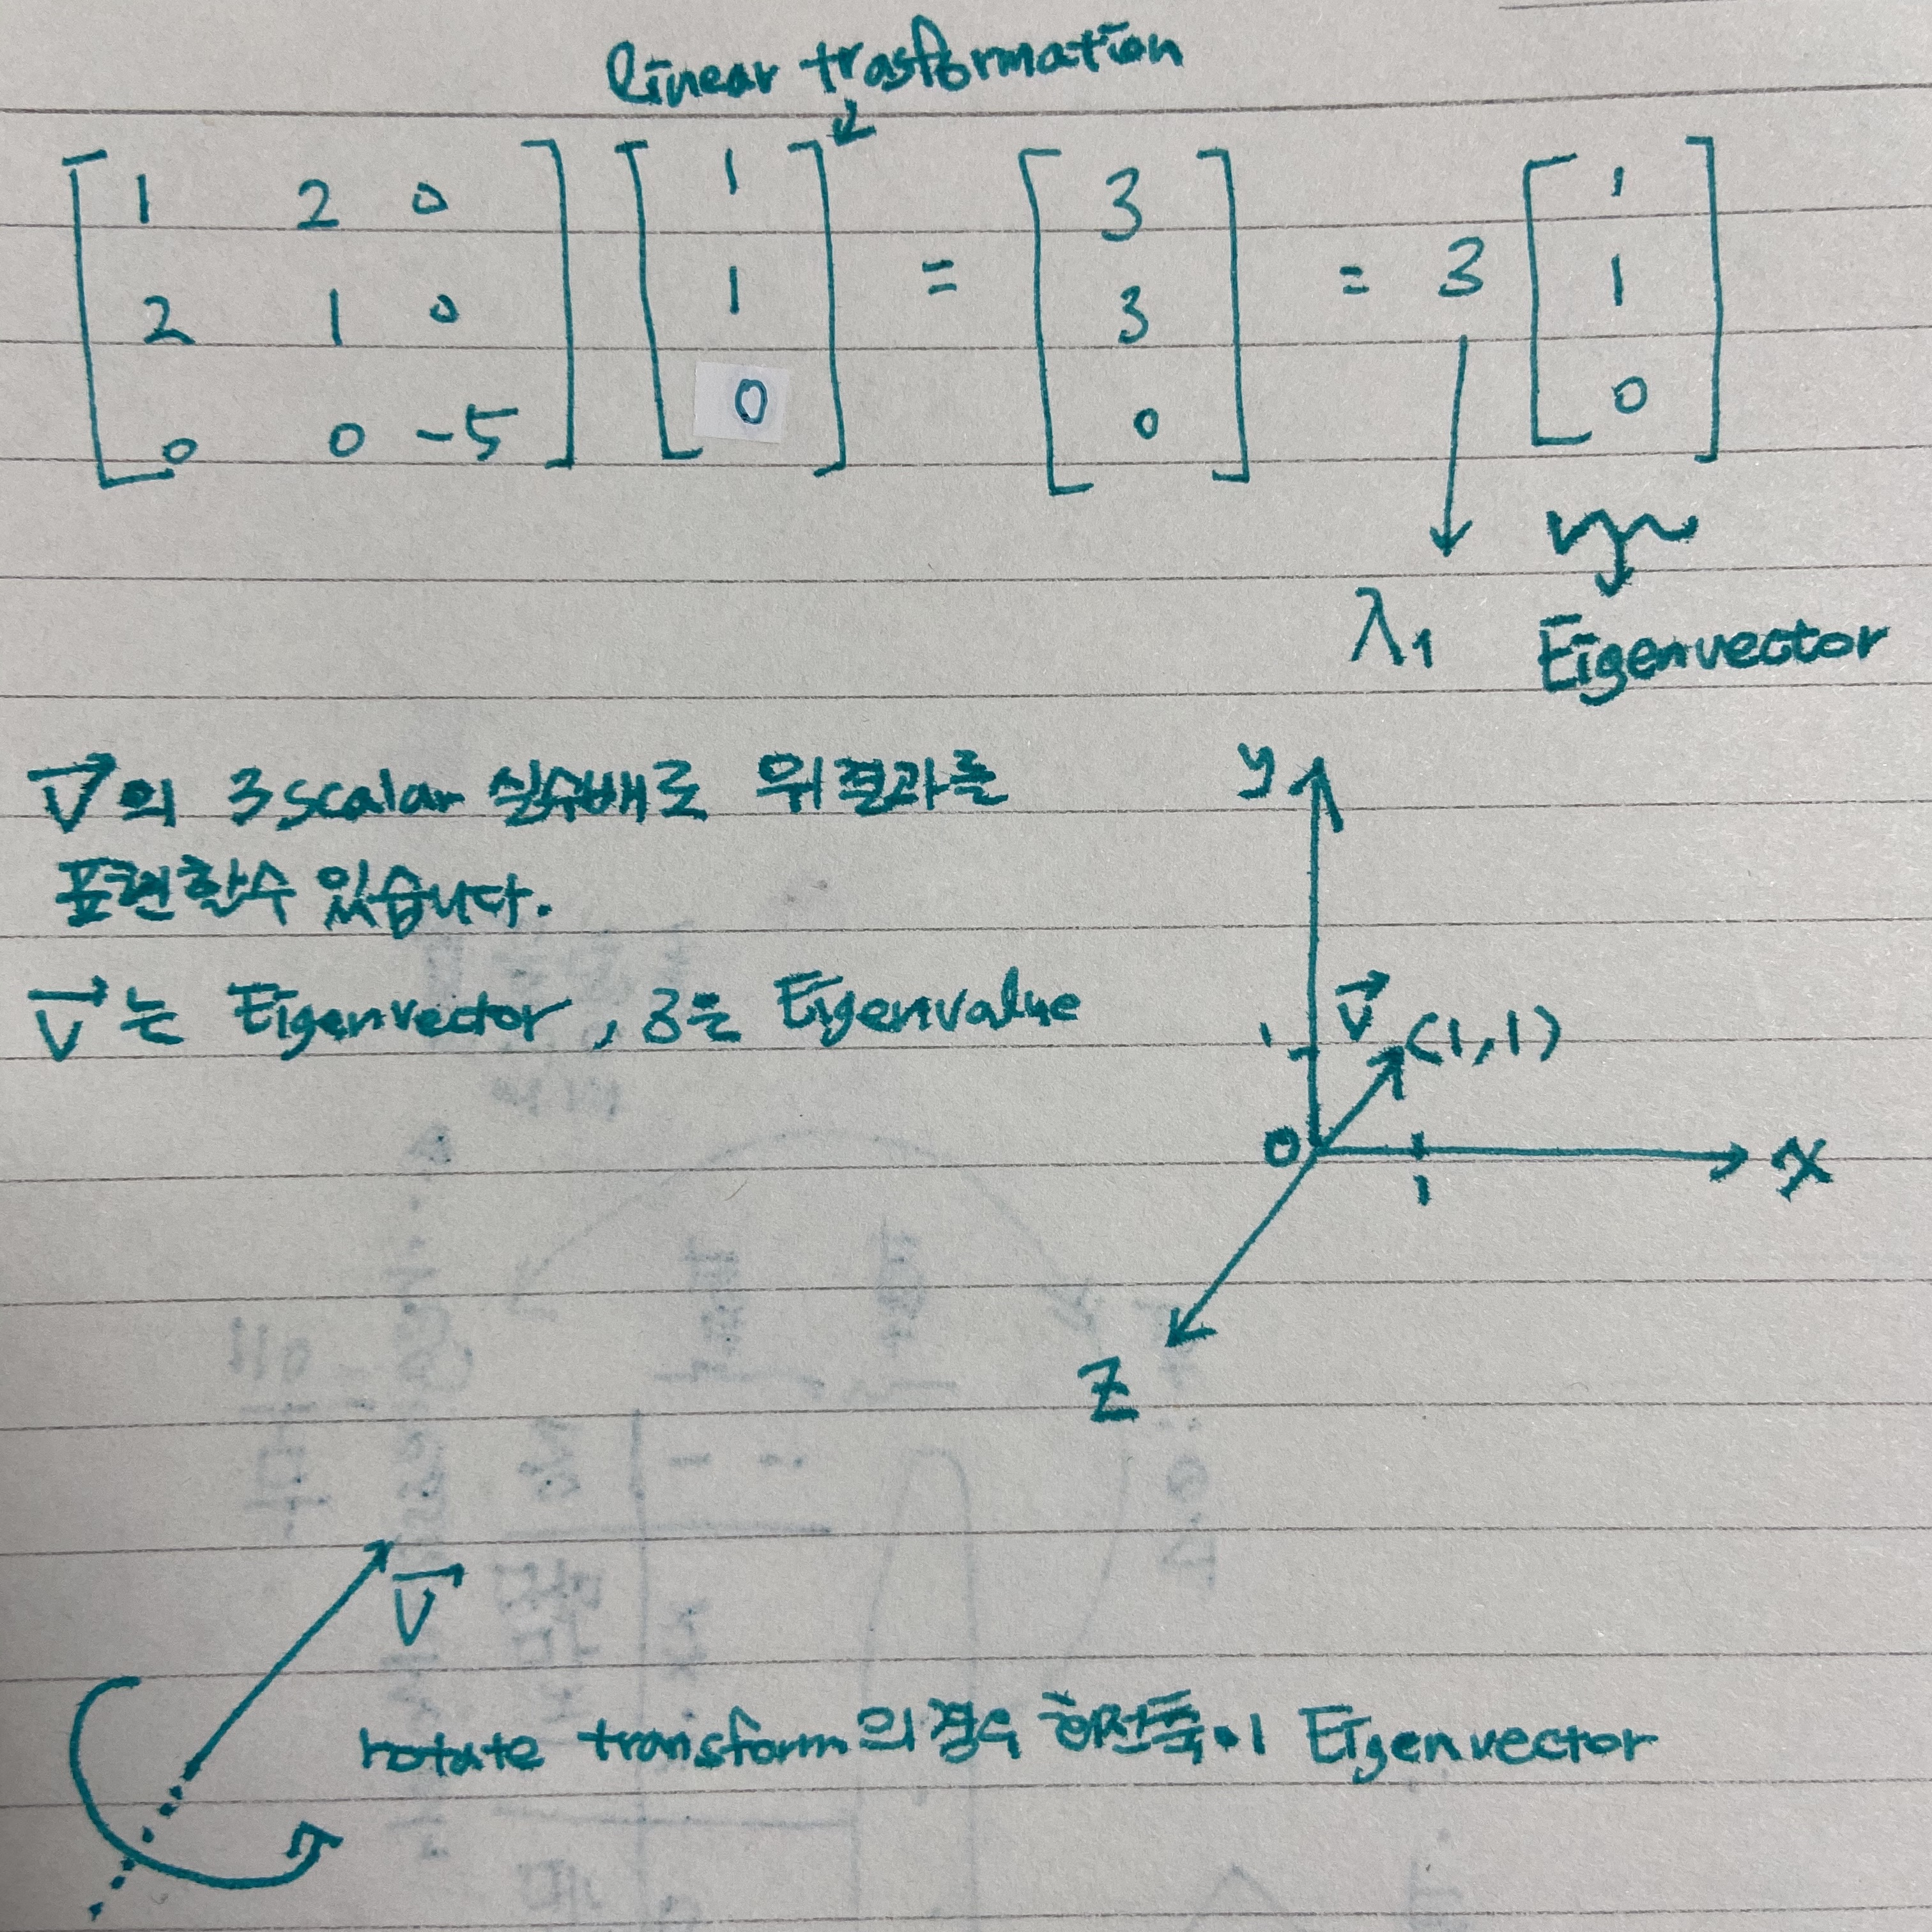 linear trasformation
[1 2 0; 2 1 0; 0 0 -5] [1; 1; 0] = [3; 3; 0] = 3 [1; 1; 0]
λ1 Eigenvector
v의 3 scalar 실수배로 위 결과를
표현할수 있습니다.
v는 Eigenvector, 3은 Eigenvalue
y
1 v (1,1)
0 1 x
z
v
rotate transform의 경우 회전축이 Eigenvector